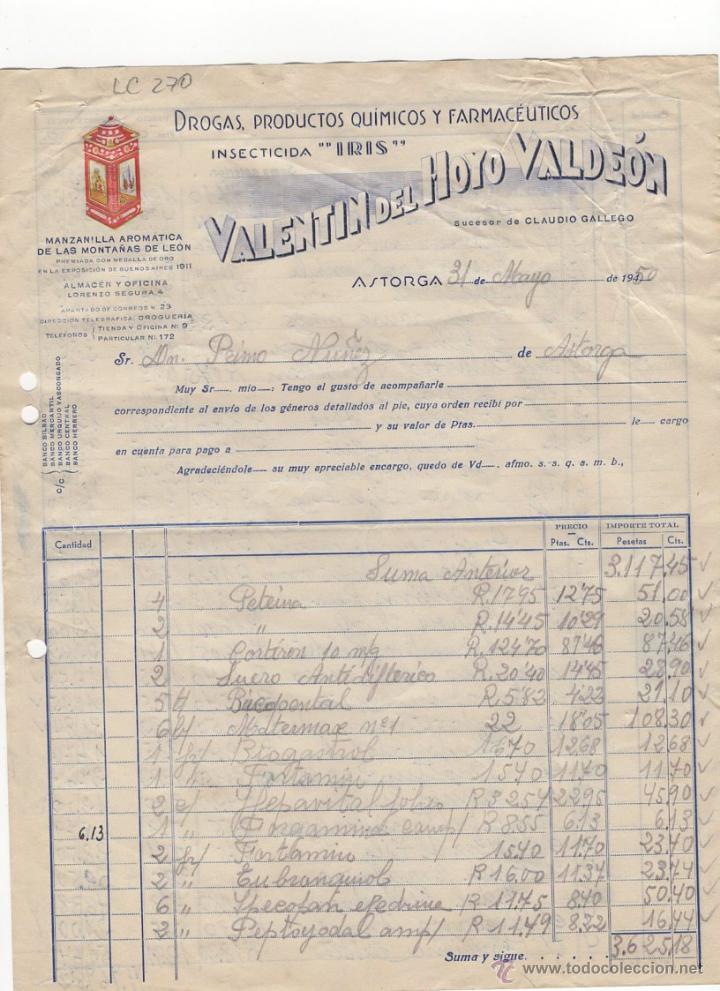 LC 270
DROGAS, PRODUCTOS QUÍMICOS Y FARMACÉUTICOS
INSECTICIDA ""IRIS""
VALENTIN DEL HOYO VALDEÓN
Sucesor de CLAUDIO GALLEGO
MANZANILLA AROMATICA
DE LAS MONTAÑAS DE LEÓN
PREMIADA CON MEDALLA DE ORO
EN LA EXPOSICIÓN DE BUENOS AIRES 1911
ALMACÉN Y OFICINA
LORENZO SEGURA, 4
APARTADO DE CORREOS N. 23
DIRECCIÓN TELEGRÁFICA: DROGUERIA
TELÉFONOS TIENDA Y OFICINA Nº 9
PARTICULAR N.º 172
ASTORGA 31 de Mayo de 1950
Sr. Dn. Primo Nuñez de Astorga
Muy Sr mio: Tengo el gusto de acompañarle
correspondiente al envío de los géneros detallados al pie, cuya orden recibí por
y su valor de Ptas. le cargo
en cuenta para pago a
Agradeciéndole su muy apreciable encargo, quedo de Vd afmo. s. s. q. s. m. b.,
C/C
BANCO BILBAO
BANCO MERCANTIL
BANCO URQUIJO VASCONGADO
BANCO CENTRAL
BANCO HERRERO
Cantidad PRECIO Ptas. Cts. IMPORTE TOTAL Pesetas Cts.
Suma Anterior 3.117.45
4 R.17.95 12'75 51.00
2 " R.14'45 10'29 20.58
1 Cortiron 10 mg R.124'70 87'46 87.46
2 Suero Antidifterico R.20'40 14'45 28.90
5 R.5'82 4.22 21.10
6 Matermax nº 1 22 18'05 108.30
1 Biogastrol 12.68 12.68
1 " Fortamin 15.40 11.70 11.70
2 Hepavital R 32.54 22.95 45.90
6.13 1 " R 8.55 6.13 6.13
2 Fortamin 15.40 11.70 23.40
2 " Eubranquiol R 16.00 11.37 23.74
6 " Specopan efedrina R 11.75 8.40 50.40
2 " Peptoyodal amp/ R 11.49 8.22 16.44
Suma y sigue 3.625.18
todocoleccion
www.todocoleccion.net